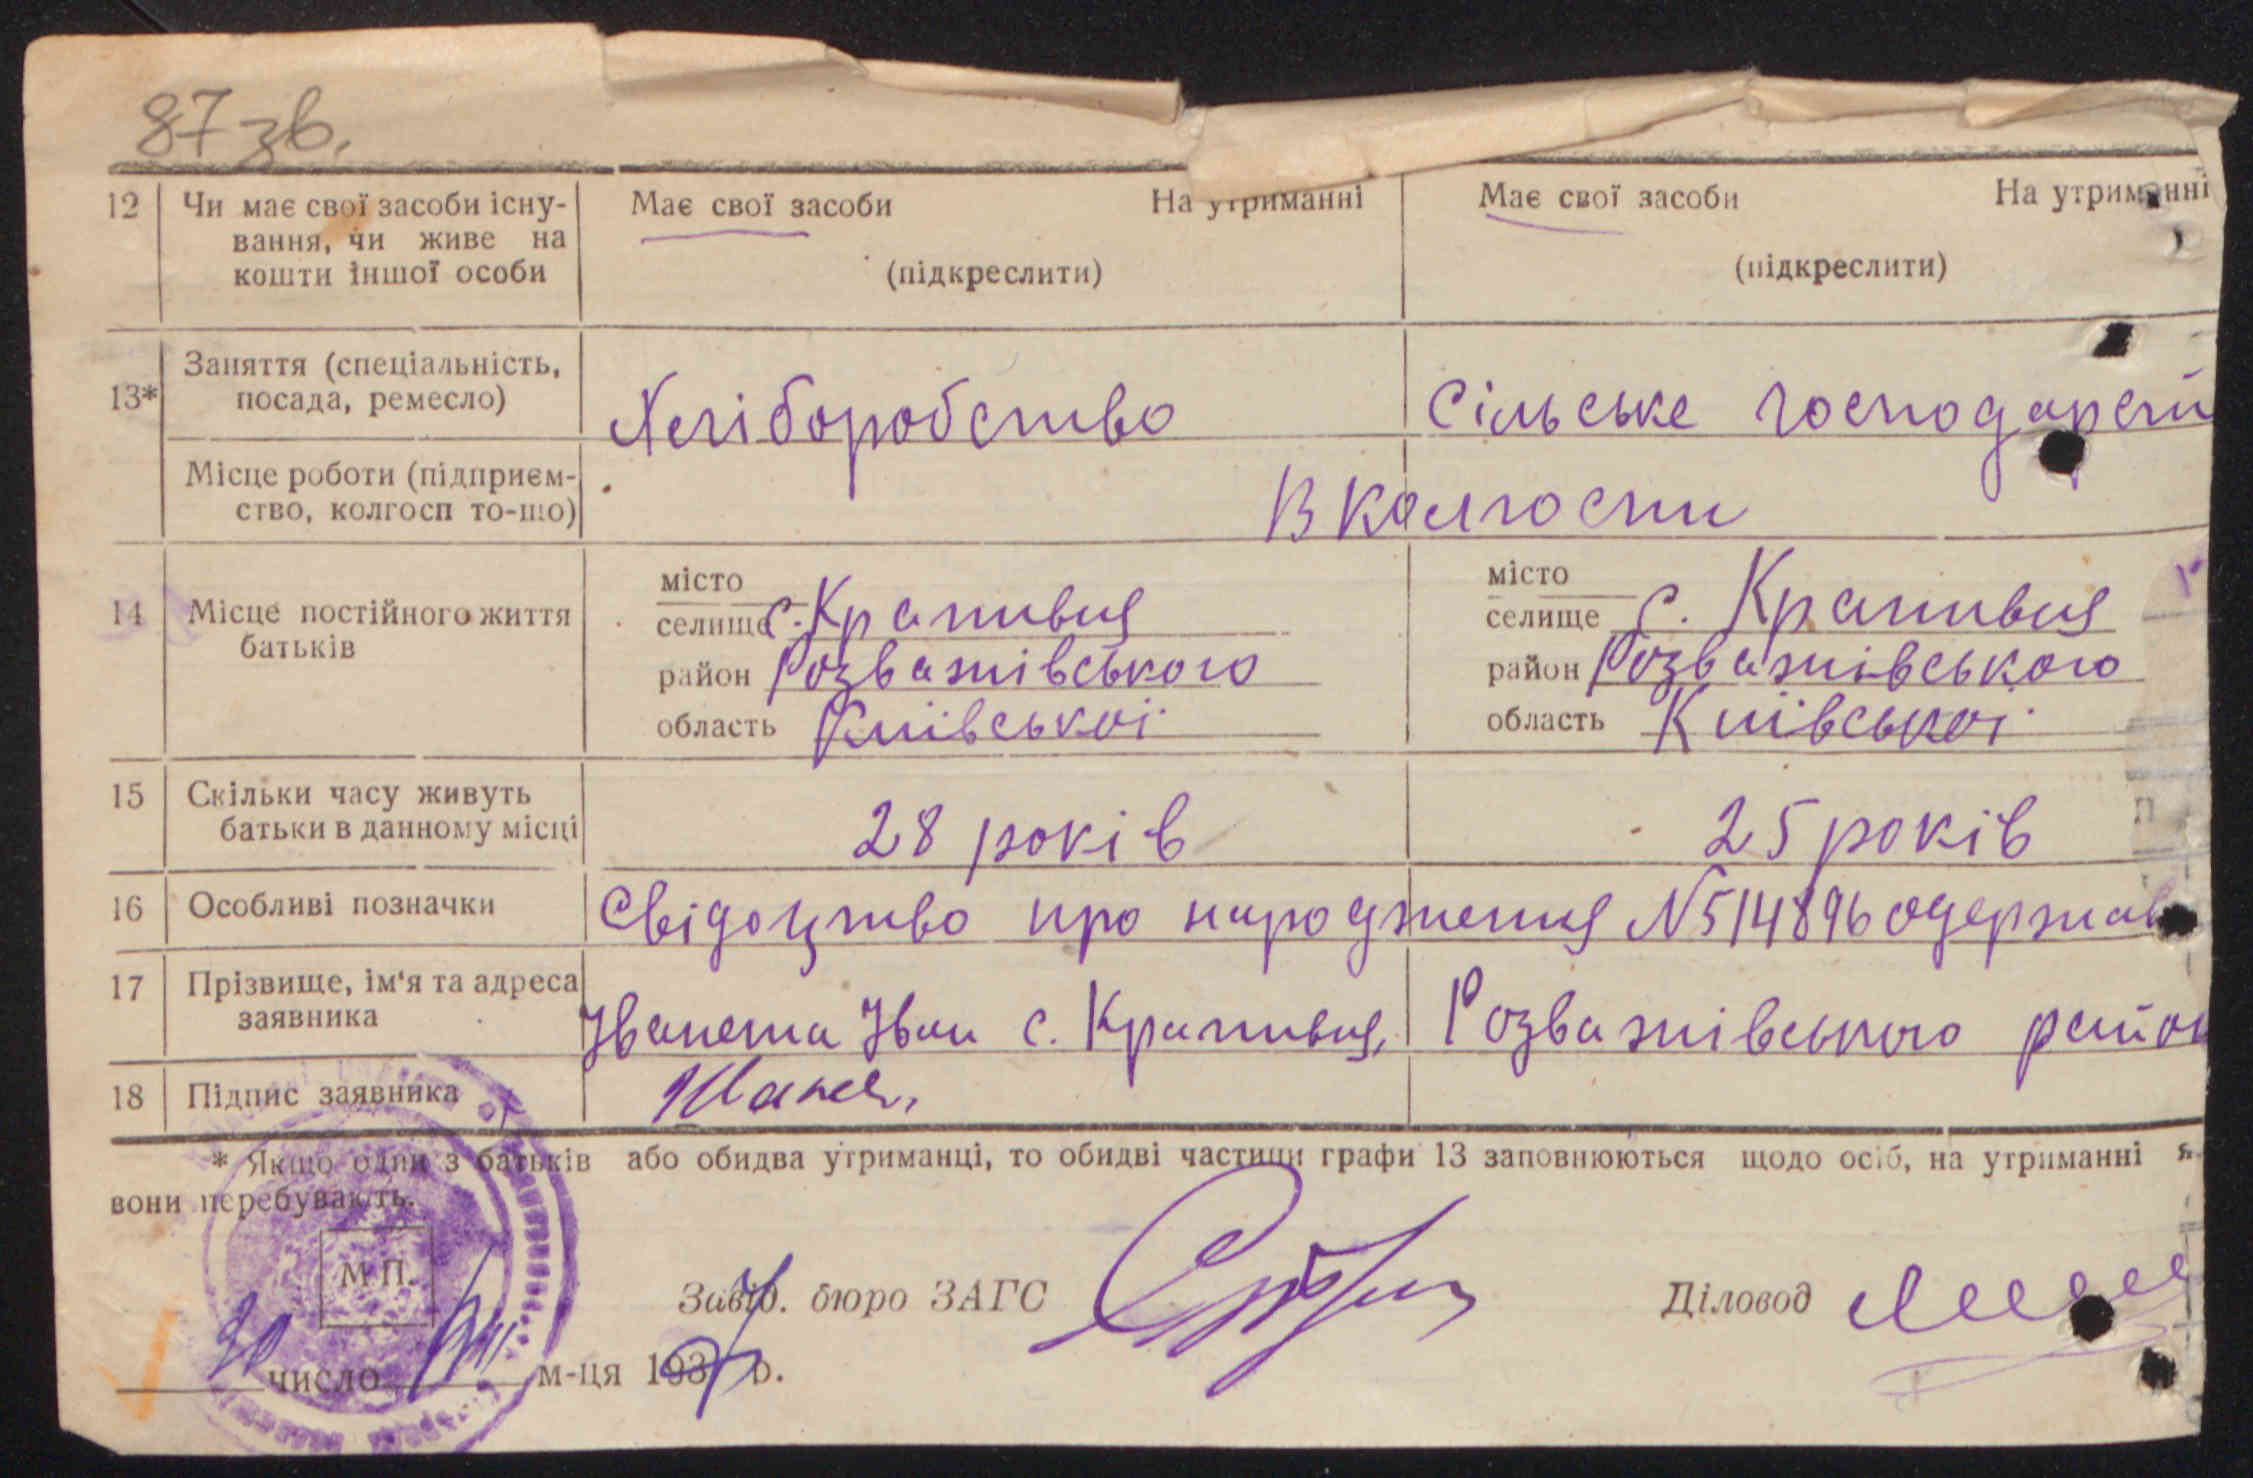 87 зв.
12 Чи має свої засоби існу- Має свої засоби На утриманні Має свої засоби На утриманні
вання, чи живе на
кошти іншої особи (підкреслити) (підкреслити)
Заняття (спеціальність,
13* посада, ремесло) Хліборобство Сільське господарст
Місце роботи (підприєм-
ство, колгосп то-що) В колгоспи
місто місто
14 Місце постійного життя селище с. Крапивня селище с. Крапивня
батьків район Розважівського район Розважівського
область Київської область Київської
15 Скільки часу живуть
батьки в данному місці 28 років 25 років
16 Особливі позначки Свідоцтво про народження №514896 одержав
17 Прізвище, ім'я та адреса
заявника Іванета Іван с. Крапивня, Розважівського район
18 Підпис заявника
* Якщо один з батьків або обидва утриманці, то обидві частини графи 13 заповнюються щодо осіб, на утриманні я
вони перебувають.
М П.
Завід. бюро ЗАГС Діловод
число м-ця 1937 р.